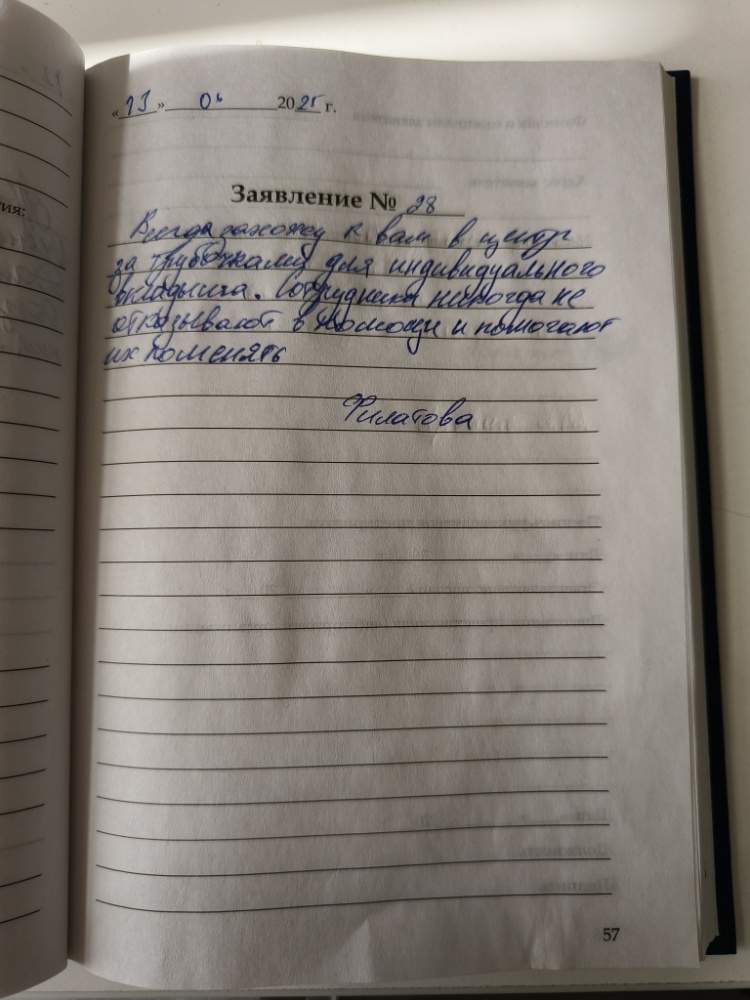 «23» 04 2025 г.
Заявление № 28
Всегда захожу к вам в центр
за трубочками для индивидуального
вкладыша. Сотрудники никогда не
отказывают в помощи и помогают
их поменять
Филатова
57